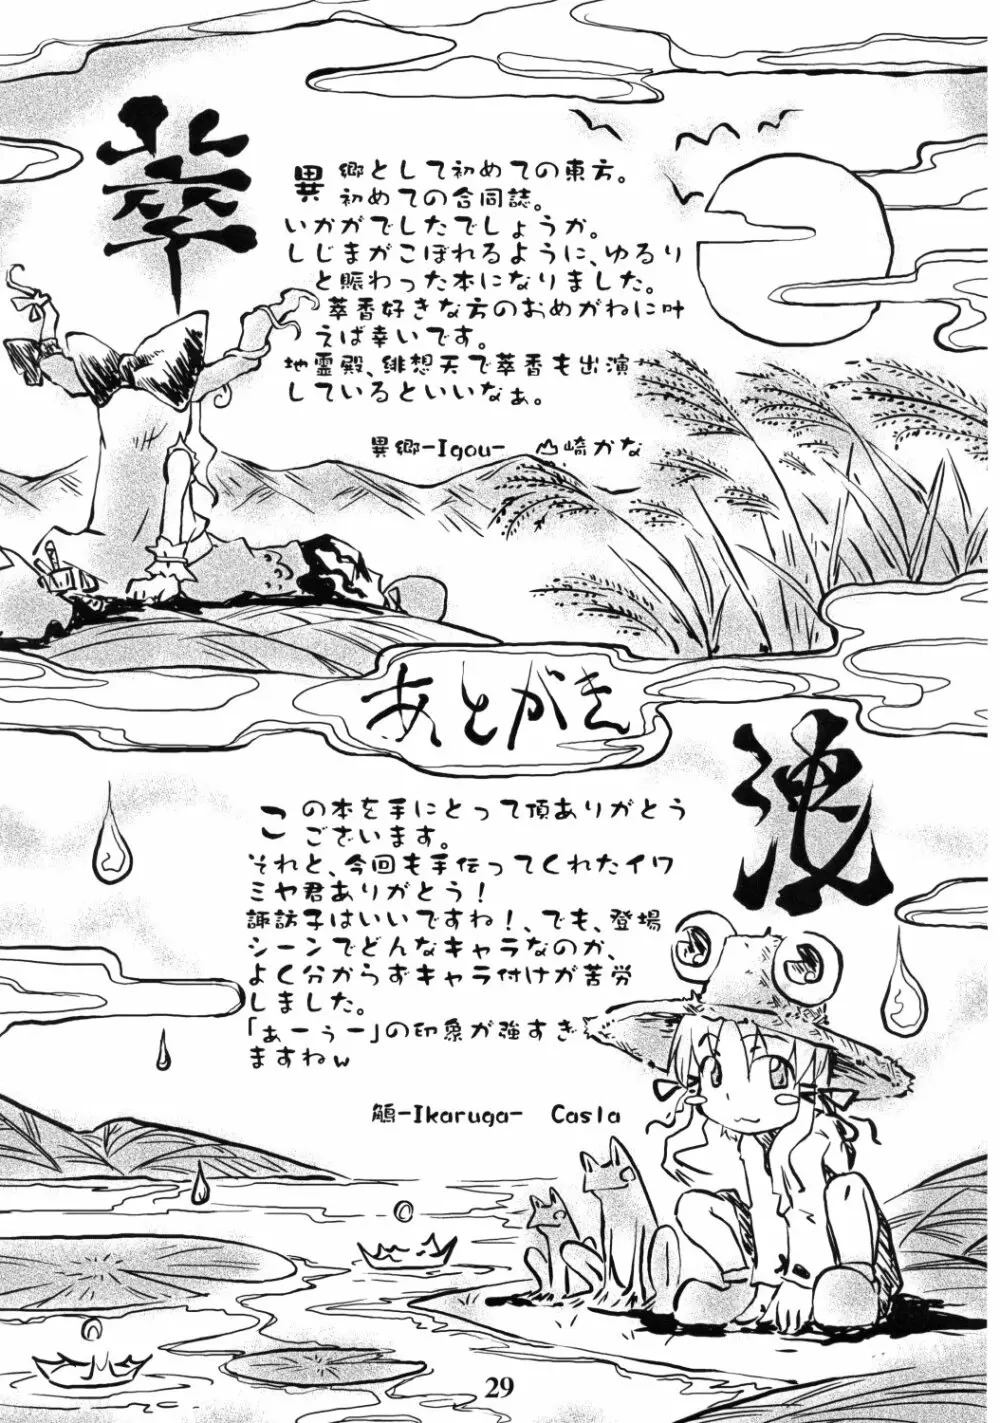 萃
異郷として初めての東方。
初めての合同誌。
いかがでしたでしょうか。
しじまがこぼれるように、ゆるり
と賑わった本になりました。
萃香好きな方のおめがねに叶
えば幸いです。
地霊殿、緋想天で萃香も出演
しているといいなぁ。
異郷-Igou- 山崎かな
あとがき
洩
この本を手にとって頂ありがとう
ございます。
それと、今回も手伝ってくれたイワ
ミヤ君ありがとう！
諏訪子はいいですね！、でも、登場
シーンでどんなキャラなのか、
よく分からずキャラ付けが苦労
しました。
「あーうー」の印象が強すぎ
ますねw
鵤-Ikaruga- Casla
29